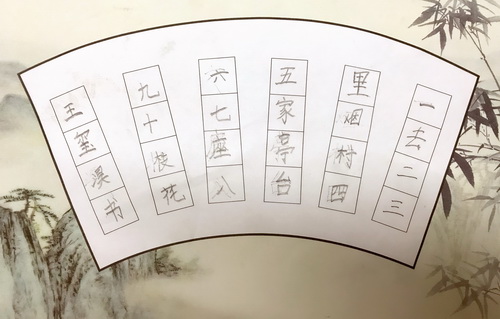 一去二三
里烟村四
五家亭台
六七座八
九十枝花
王玺书